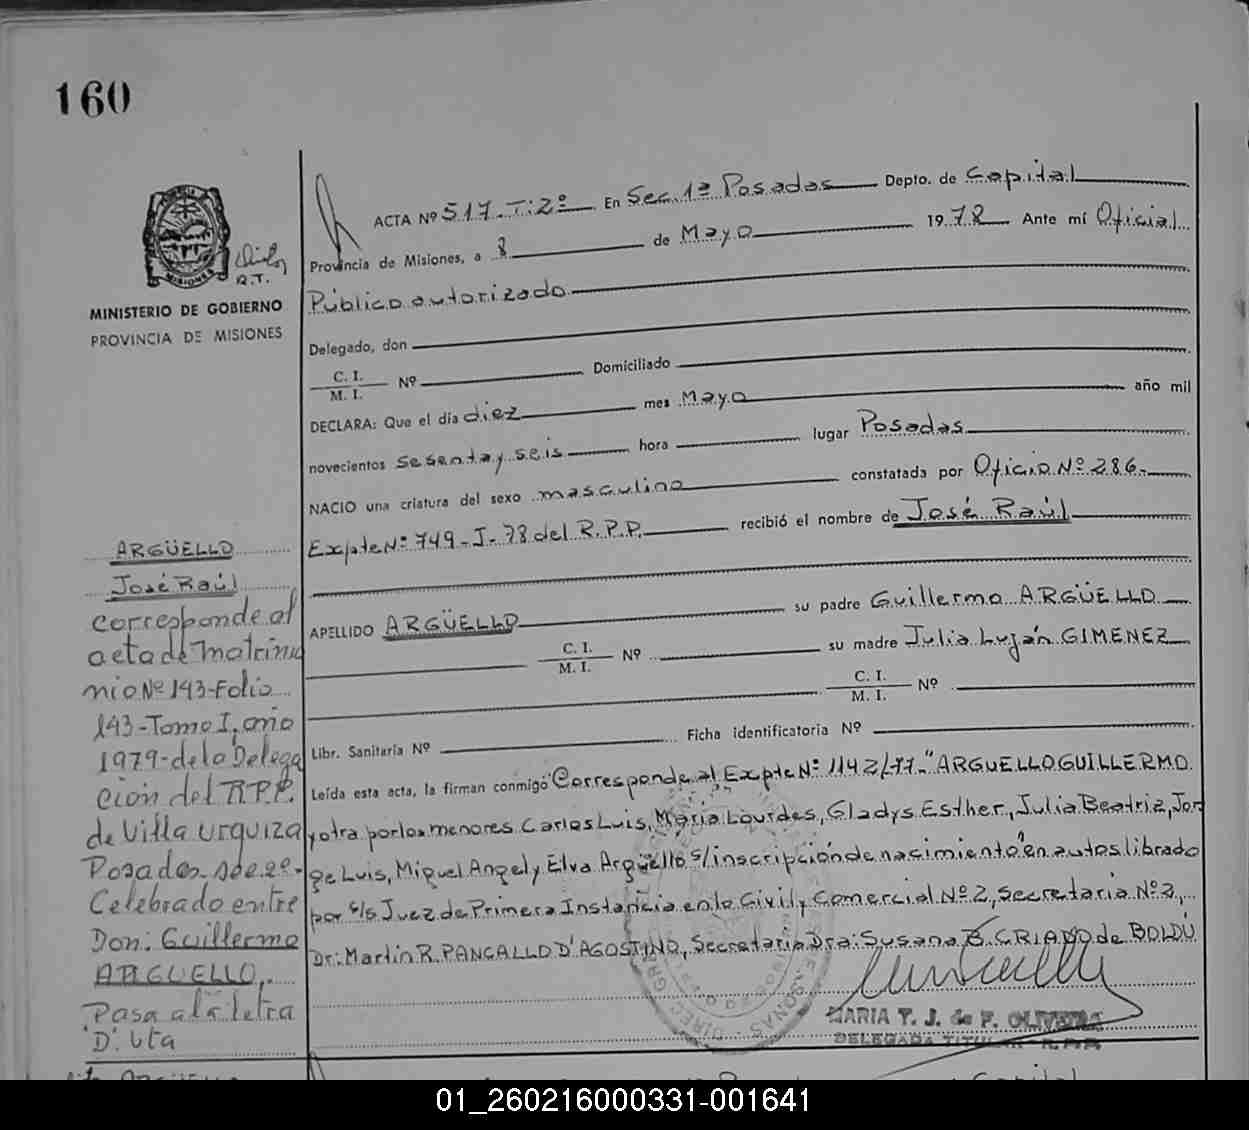 160
MINISTERIO DE GOBIERNO
PROVINCIA DE MISIONES
R.T.
ACTA Nº 517-T:2º En Sec. 1ª Posadas Depto. de Capital
Provincia de Misiones, a 8 de Mayo 1978 Ante mí Oficial
Público autorizado
Delegado, don
C. I.
M. I. Nº Domiciliado
DECLARA: Que el día diez mes Mayo año mil
novecientos sesenta y seis hora lugar Posadas
NACIO una criatura del sexo masculino constatada por Oficio Nº 286-
Expte Nº 749-J-78 del R.P.P. recibió el nombre de José Raúl
APELLIDO ARGÜELLO su padre Guillermo ARGÜELLO
C. I.
M. I. Nº su madre Julia Luján GIMENEZ
C. I.
M. I. Nº
Libr. Sanitaria Nº Ficha identificatoria Nº
Leída esta acta, la firman conmigo Corresponde al Expte Nº 1142/77-"ARGUELLO GUILLERMO
y otra por los menores Carlos Luis, María Lourdes, Gladys Esther, Julia Beatriz, Jor
ge Luis, Miguel Angel y Elva Argüello s/inscripción de nacimiento" en autos librado
por s/s Juez de Primera Instancia en lo Civil y Comercial Nº 2, Secretaria Nº 2,
Dr: Martin R. PANCALLO D'AGOSTINO, Secretaria Dra: Susana B. CRIADO de BOLDÚ
MARIA T. J. de F. OLIVERA
DELEGADA TITULAR - R.P.P.
ARGÜELLO
José Raúl
corresponde al
acta de matrimo
nio Nº 143-Folio
143-Tomo I, año
1979-de la Delega
ción del R.P.P.
de Villa Urquiza
Posadas
Celebrado entre
Don: Guillermo
ARGUELLO,
Pasa a la letra
"D". Vta
01_260216000331-001641